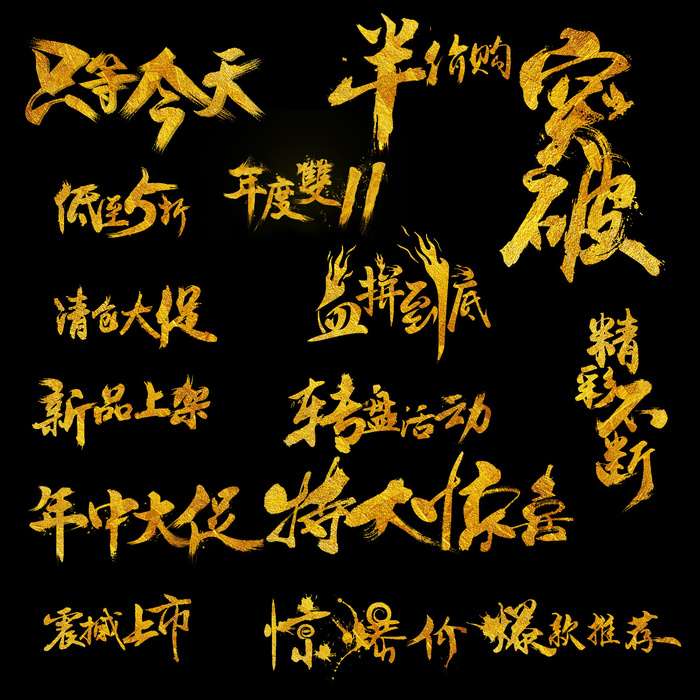 只等今天
半价购
突破
低至5折
年度雙11
清仓大促
血拼到底
精彩不断
新品上架
转盘活动
年中大促
特大惊喜
震撼上市
惊爆价
爆款推荐